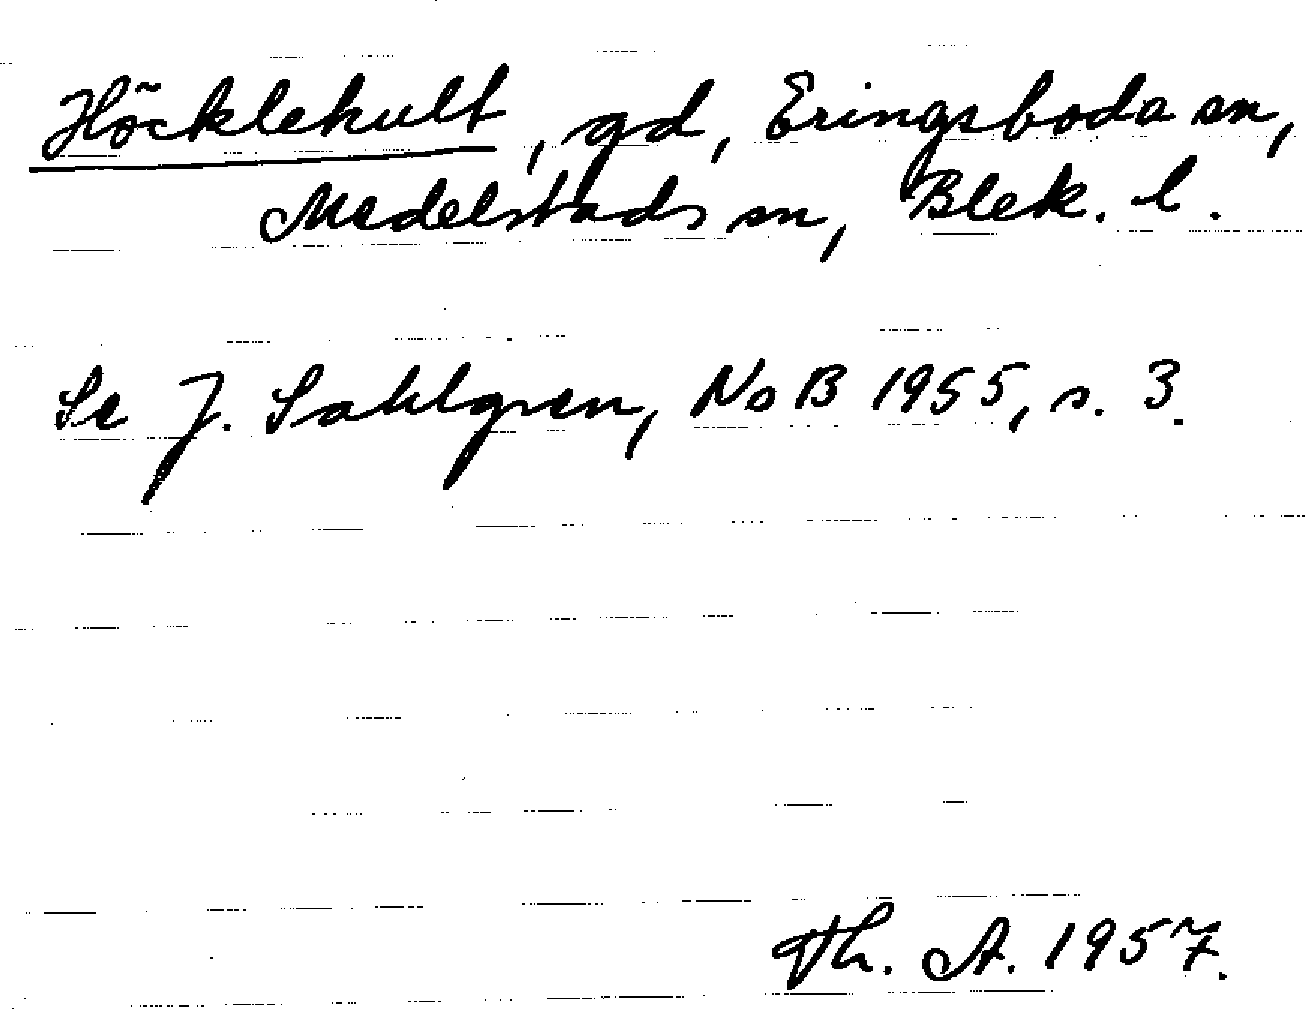 Höcklehult, gd, Eringsboda sn,
Medelstads sn, Blek. l.
Se J. Sahlgren, NoB 1955, s. 3.
Th. A. 1957.